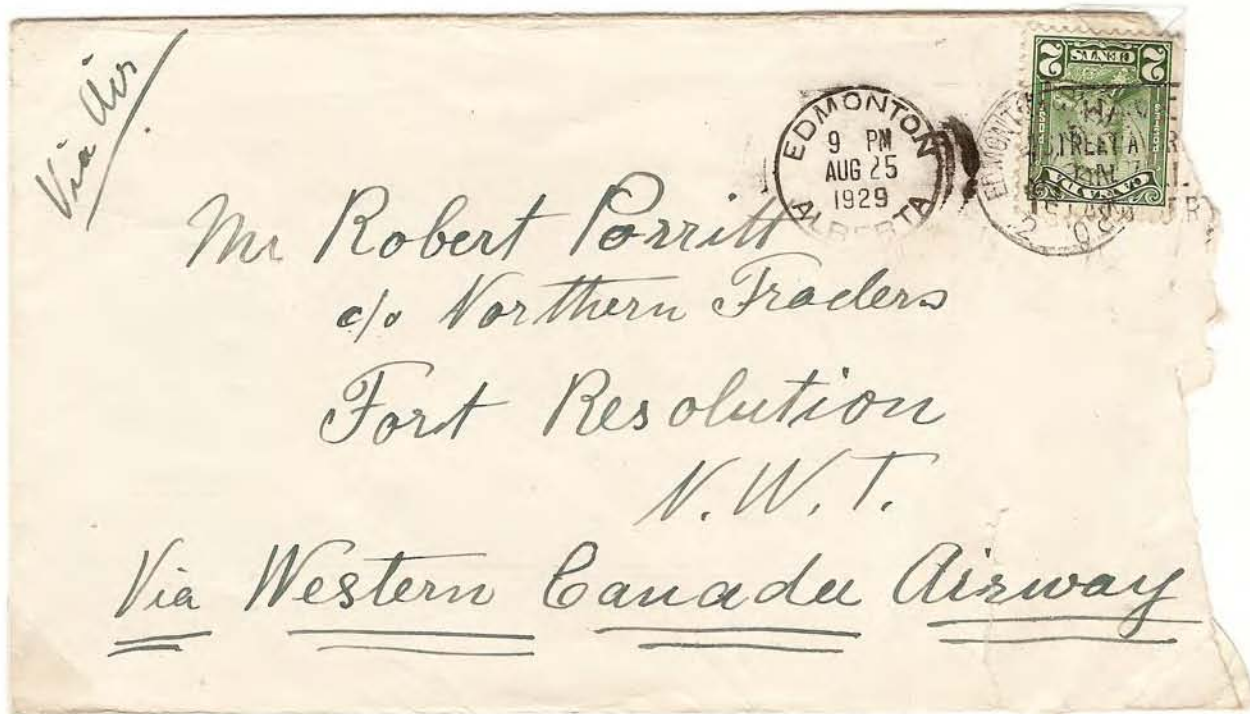 Via Air
EDMONTON
9 PM
AUG 25
1929
ALBERTA
2 CENTS 2
CANADA
EDMONTON
STREET
Mr Robert Porritt
c/o Northern Traders
Fort Resolution
N.W.T.
Via Western Canada Airway